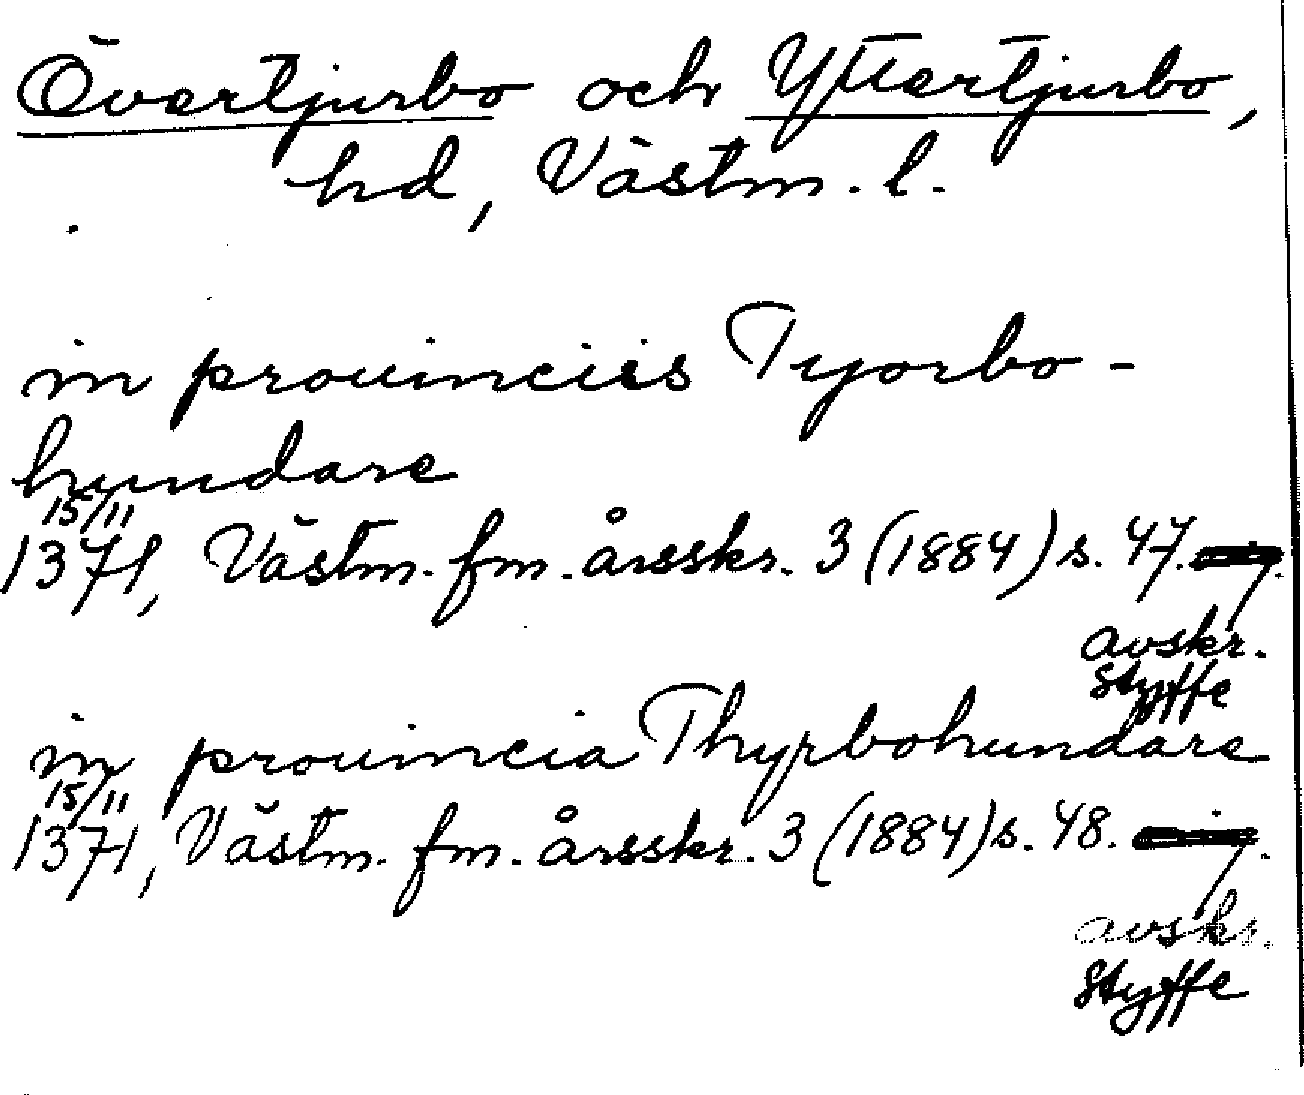 Övertjurbo och Yttertjurbo,
hd, Västm. l.
in prouinciis Tyorbo-
hundare
15/11
1371, Västm. fm. årsskr. 3 (1884) s. 47.
avskr.
Styffe
in prouincia Thyrbohundare
15/11
1371, Västm. fm. årsskr. 3 (1884) s. 48.
avskr.
Styffe